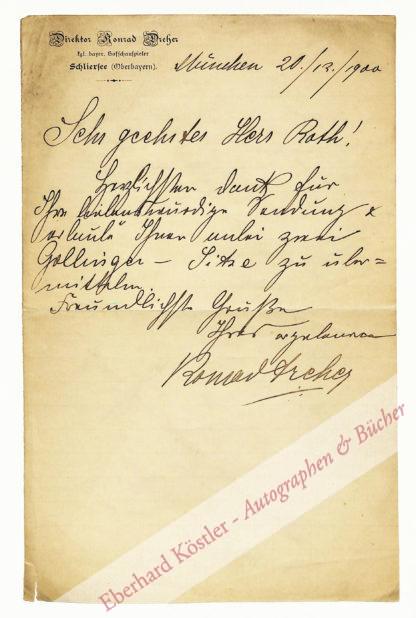 Direktor Konrad Dreher
kgl. bayr. Hofschauspieler
Schliersee (Oberbayern).
München 20./12./1900
Sehr geehrter Herr Roth!
Herzlichsten Dank für
Ihre liebenswürdige Sendung &
erlaube Ihnen anbei zwei
Gollinger - Sitze zu über=
mitteln.
Freundlichste Grüße
Ihres ergebenen
Konrad Dreher
Eberhard Köstler - Autographen & Bücher